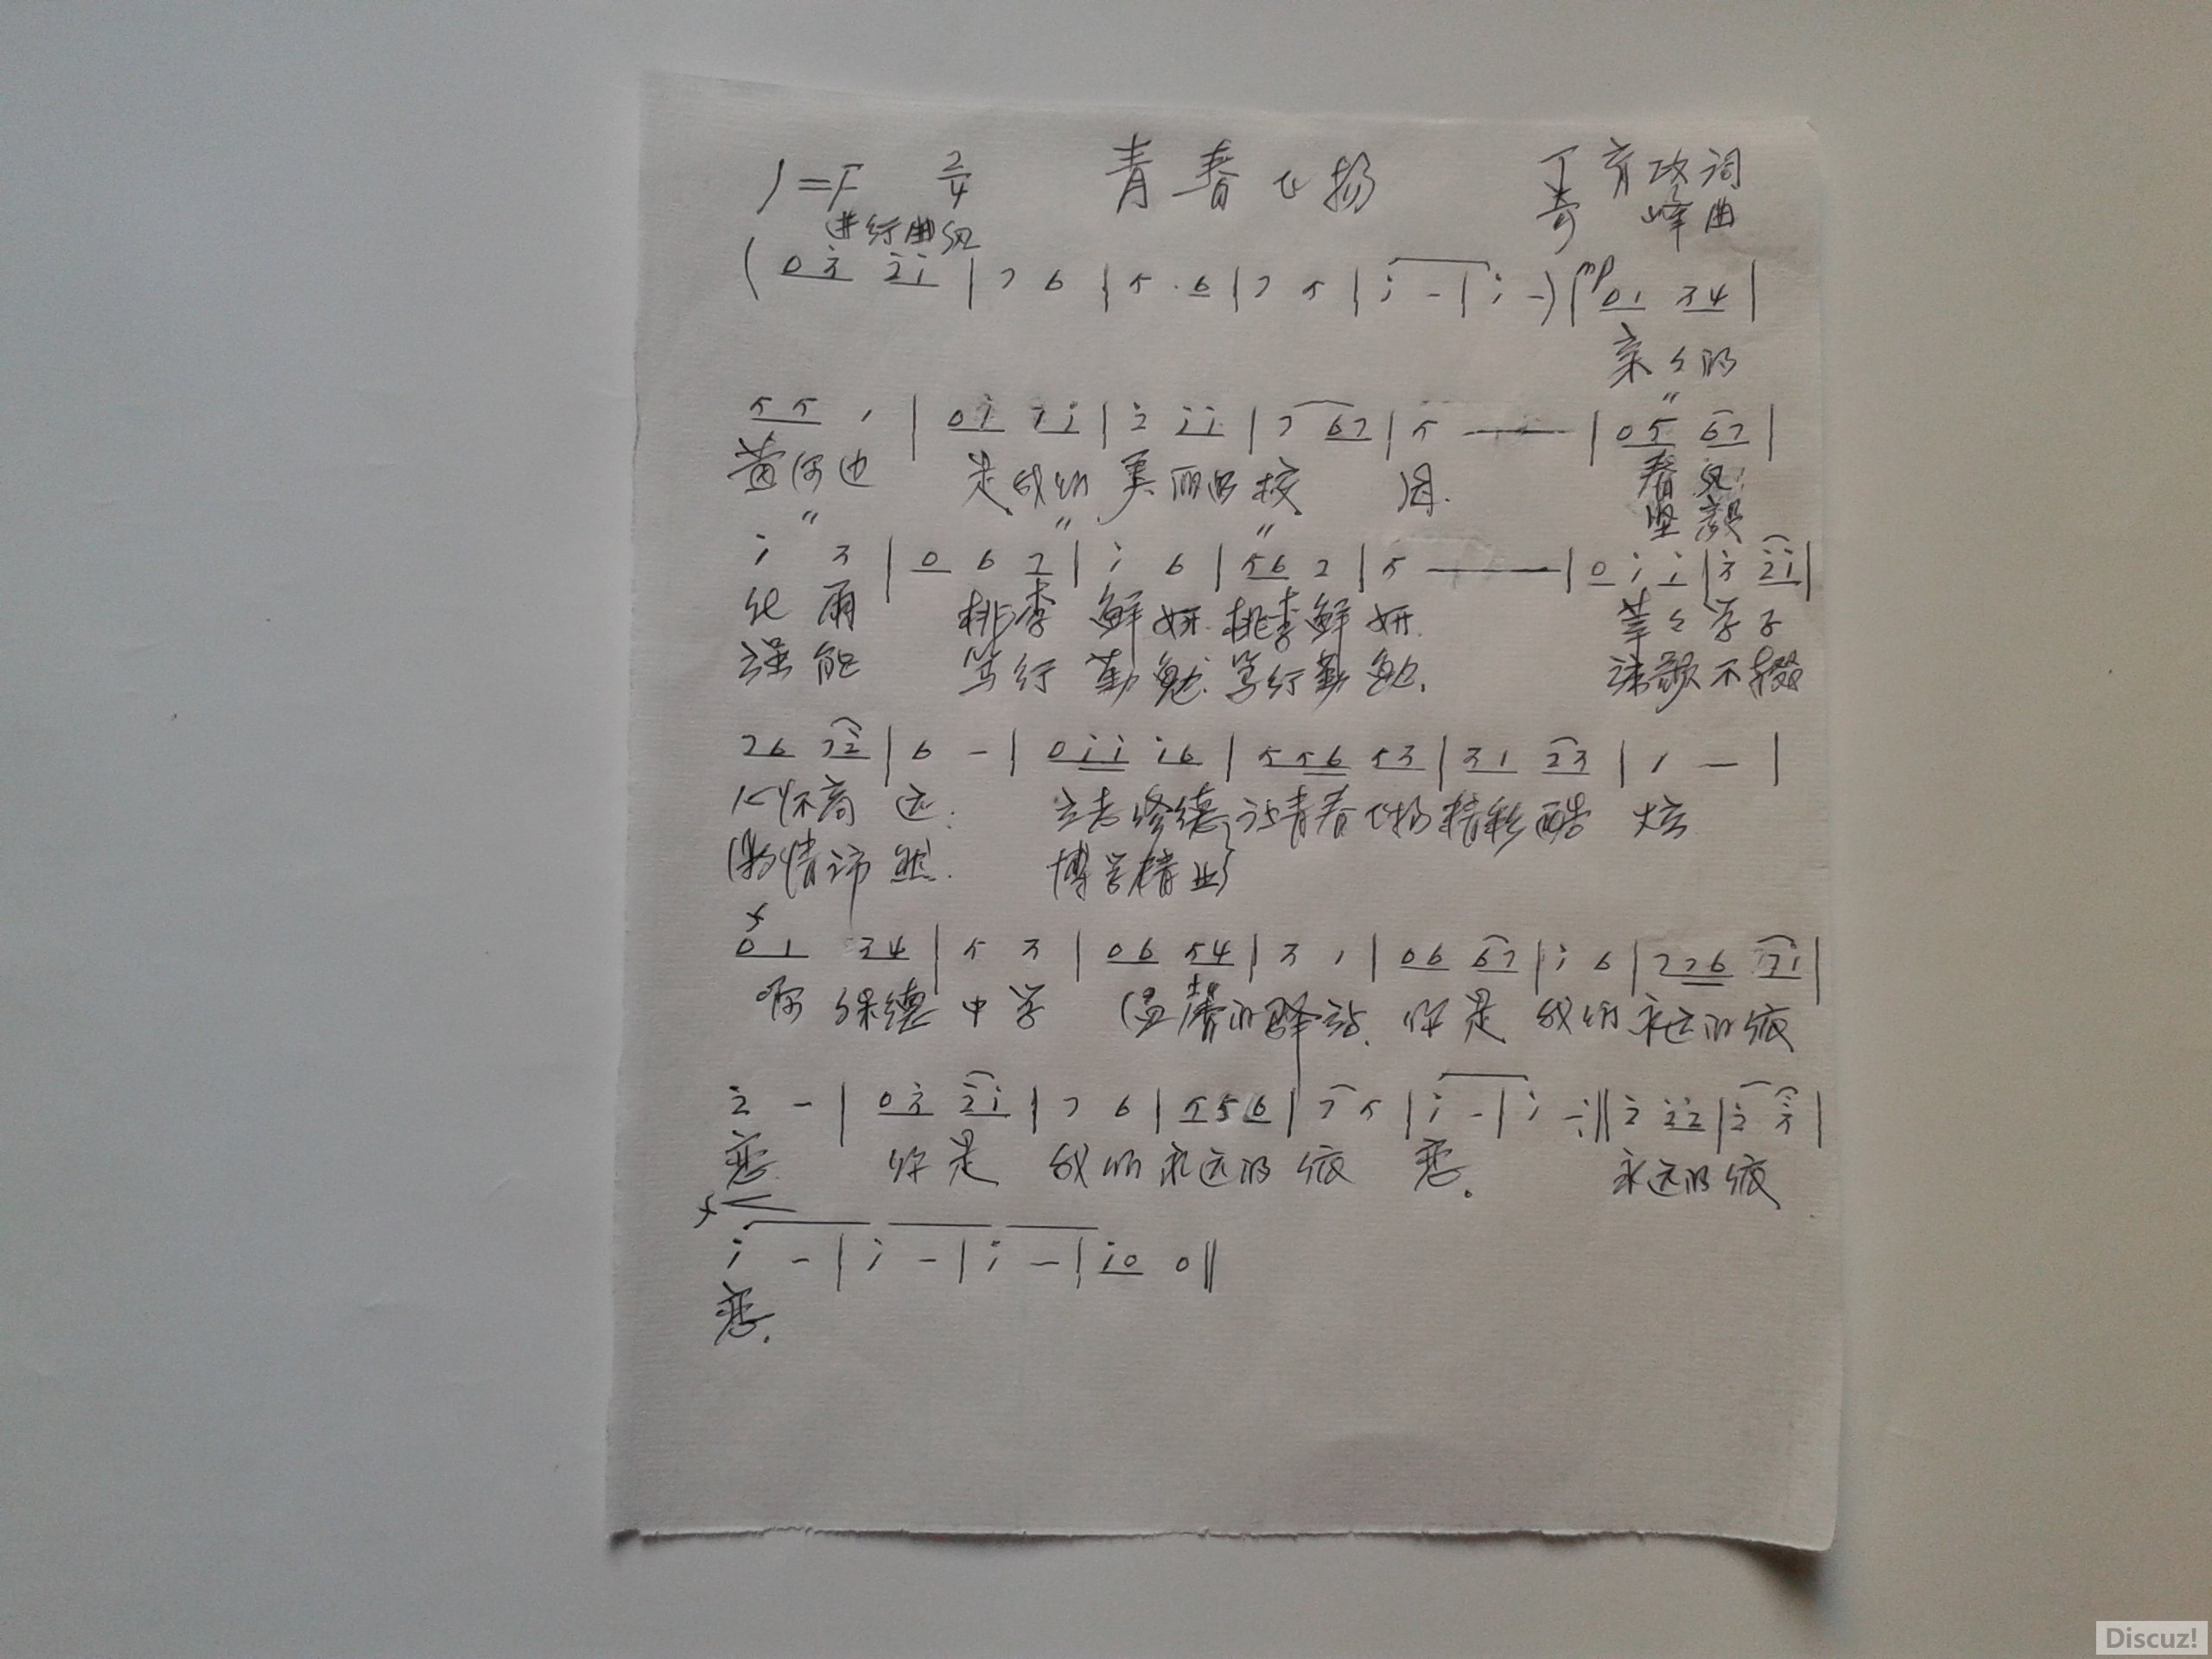 1=F 2/4 青春飞扬 丁育政词
进行曲风 寿峰曲
(0 3̇ 2̇ 1̇ | 7 6 | 5 · 6 | 7 5 | 1̇ - | 1̇ -) | mp 0 1 3 4 |
亲々的
5 5 1 | 0 1̇ 1̇ 1̇ | 2̇ 1̇ 1̇ | 7 6 7 | 5 — | 0 5 6 7 |
黄河边 是我们美丽的校园. 春风
坚毅
1̇ 3 | 0 6 7 | 1̇ 6 | 5 6 2 | 5 — | 0 1̇ 1̇ | 3̇ 2̇ 1̇ |
化雨 桃李鲜妍.桃李鲜妍. 莘々学子
强能 笃行勤勉.笃行勤勉. 弦歌不辍
7 6 7 2̇ | 6 - | 0 1̇ 1̇ 1̇ 6 | 5 5 6 5 3 | 3 1 2 3 | 1 — |
心怀高远. 立志修德 让青春飞扬精彩酷炫
激情沛然. 博学精业
f
0 1 3 4 | 5 3 | 0 6 5 4 | 3 1 | 0 6 6 7 | 1̇ 6 | 7 7 6 7 1̇ |
啊 保德中学 温馨的驿站. 你是我们永远的依
2̇ - | 0 3̇ 2̇ 1̇ | 7 6 | 5 5 6 | 7 5 | 1̇ - | 1̇ - :‖ 2̇ 2̇ 2̇ | 2̇ 3̇ |
恋 你是我们永远的依恋. 永远的依
f <
1̇ - | 1̇ - | 1̇ - | 1̇ 0 0 ‖
恋.
Discuz!